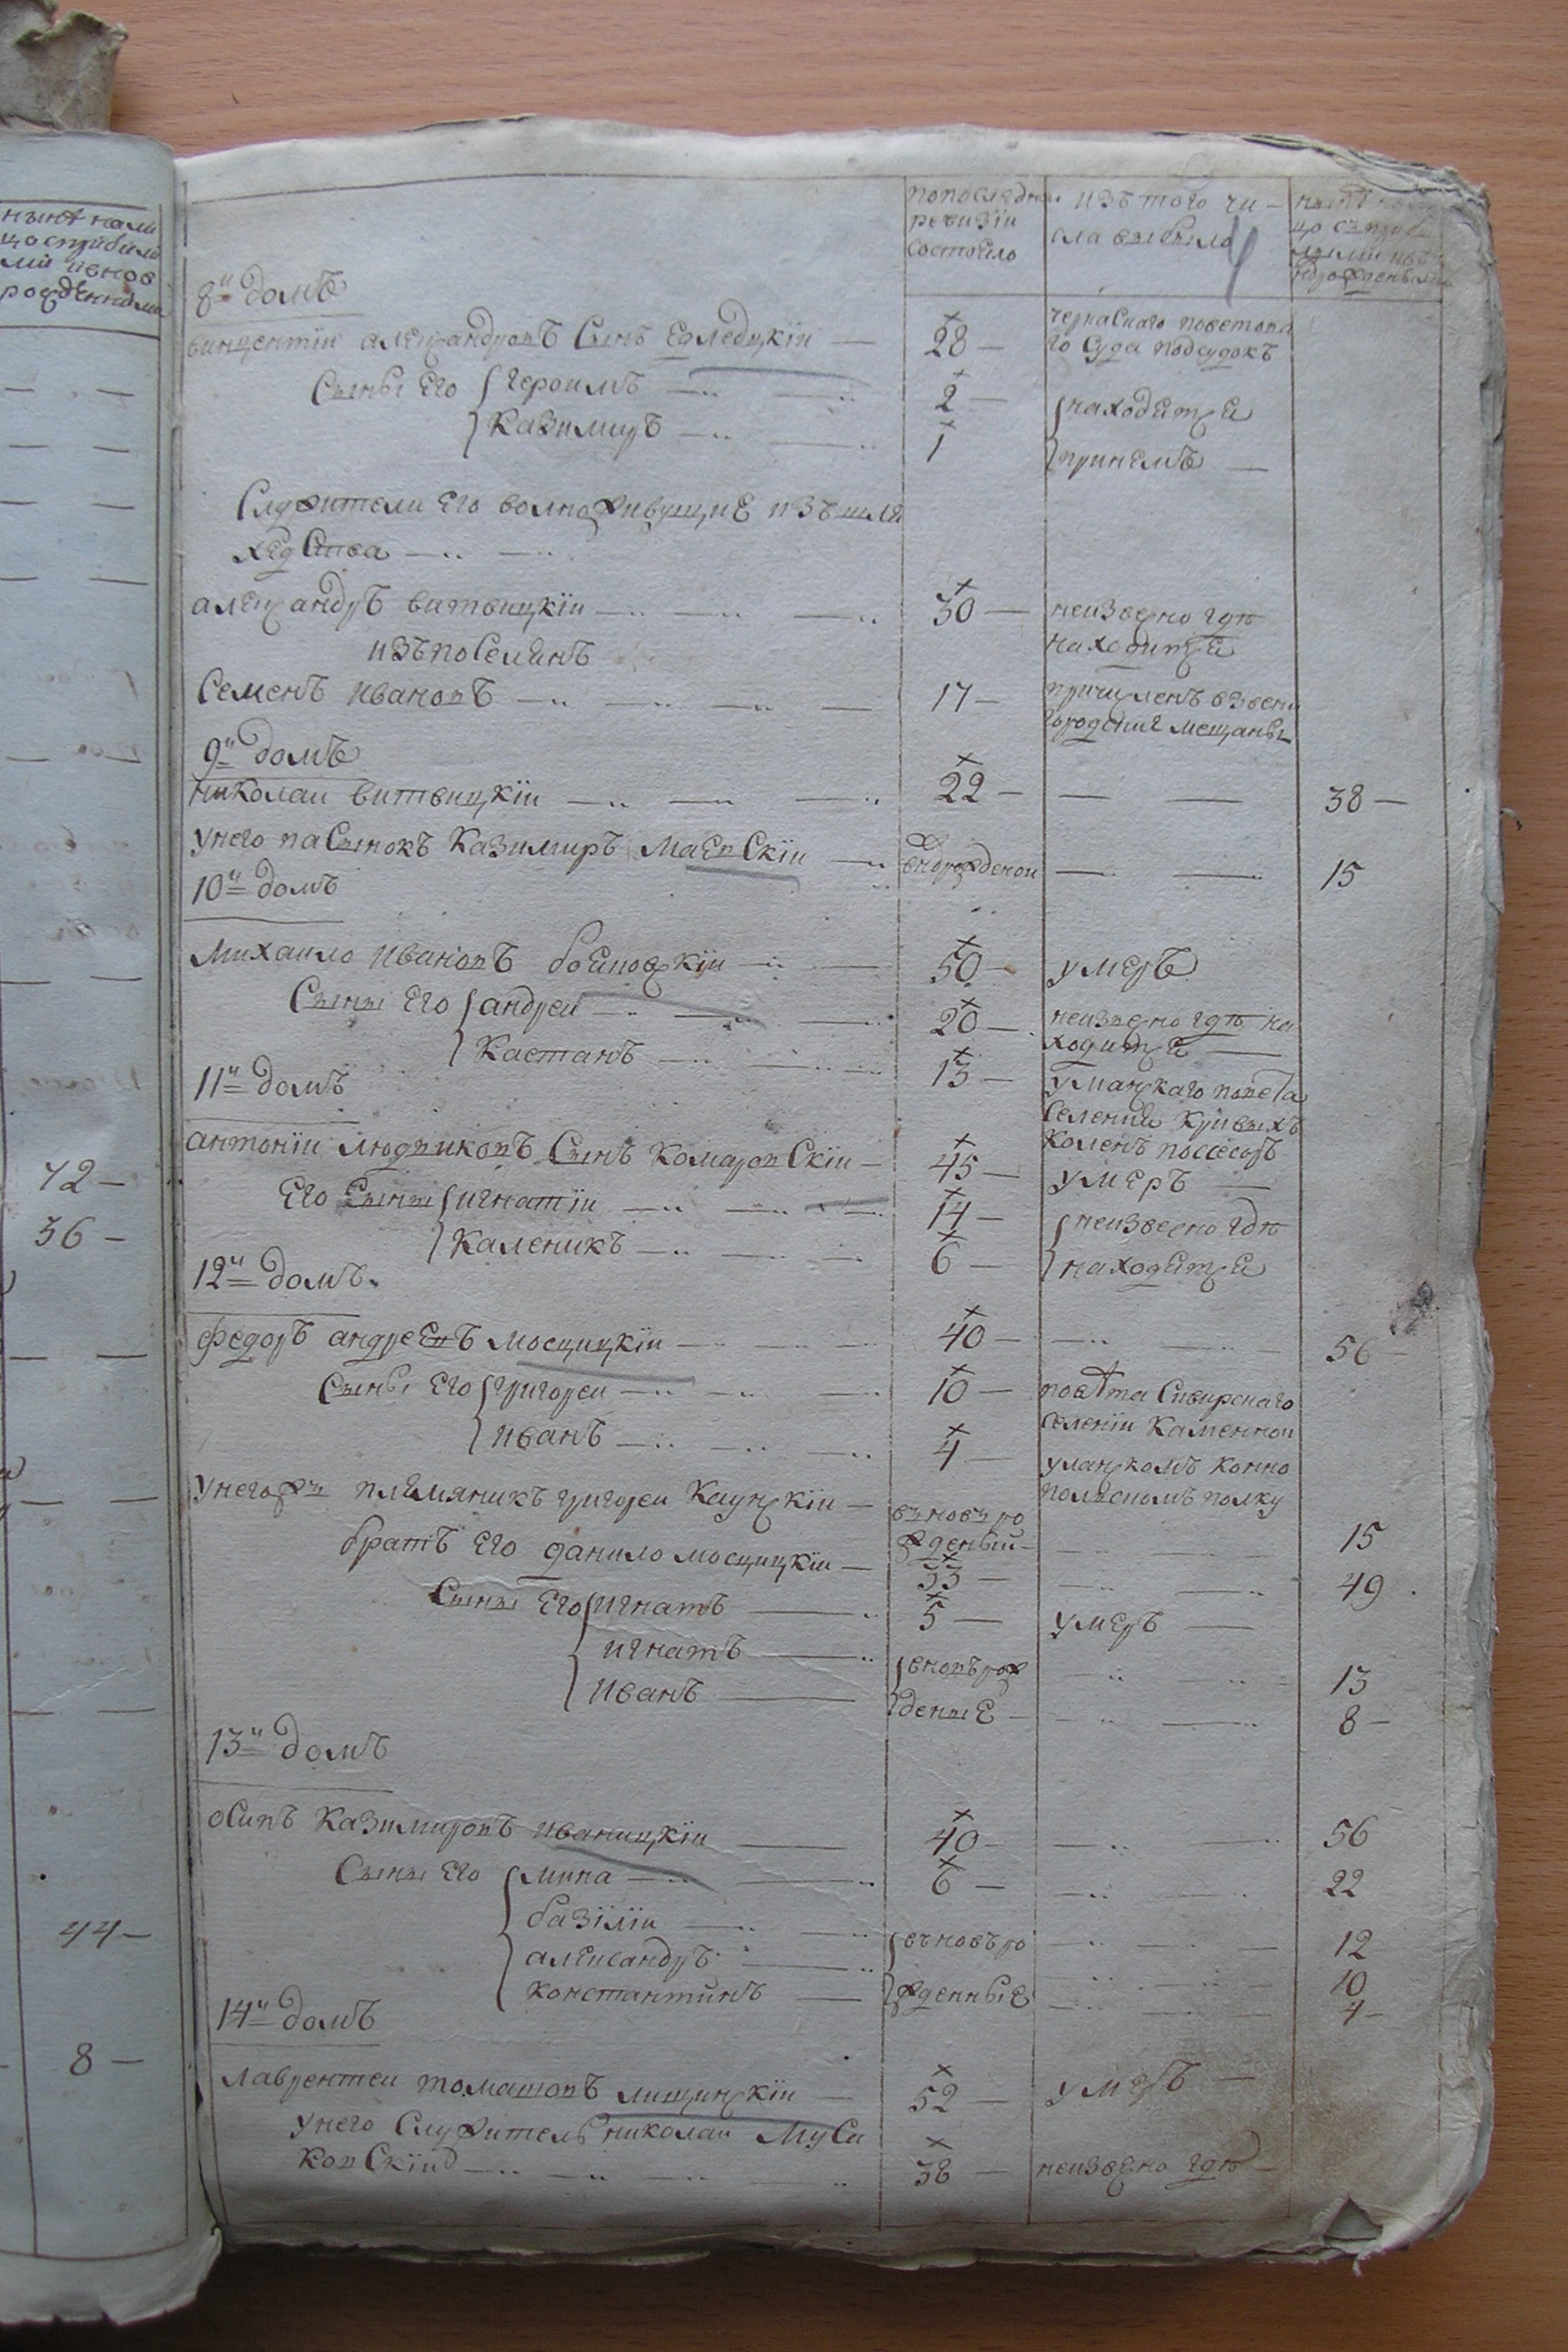 нынѣ нали
цо сприбыли
ми ивнов
рожденными
72 —
36 —
44 —
8 —
попоследнеи
ревизіи
состоело
изъ того чи —
сла выбыло
нынѣ нали
цо съприбы
лыми нов
рождеными
8й домъ
винцентіи александровъ Сынъ — 28 — черкаскаго поветова
го Суда подсудокъ
Сыны Его героимъ — 2 — находитця
Казимиръ — 1 принемъ —
Служители Его волножывущие изъ шля
хедства —
александръ витвицкіи — 30 — неизвесно гдѣ
находитця
изъ поселянъ
Семенъ ивановъ — 17 — причисленъ взвени
городския мещаны
9й домъ
николаи витвицкіи — 22 — — 38 —
унего пасынокъ Казимиръ маевскіи — вноврожденои — 15
10й домъ
михаило ивановъ боиновскіи — 50 — умеръ
Сыны Его андреи — 20 — неизвесно гдѣ на
ходитця —
Кастанъ — 13 — уманскаго повета
Селения Кривыхъ
Коленъ поссесоръ
11й домъ
антоніи людвиковъ Сынъ Комаровскіи — 45 — умеръ —
Его Сыны игнатіи — 14 — неизвесно гдѣ
Каленикъ — 6 — находитця
12й домъ
федоръ андреевъ мосцицкіи — 40 — — 56 —
Сыны Его григореи — 10 — повѣта Сивирскаго
селеніи Каменнои
иванъ — 4 — уланскомъ конно
польскомъ полку
унегожъ племяникъ григореи — въновъро
жденый — 15
братъ Его данило мосцицкіи — 33 — — 49
Сыны Его игнатъ — 5 — умеръ —
игнатъ — вновърож — 13
иванъ — деные — — 8 —
13й домъ
осипъ Казимировъ иваницкіи — 40 — — 56
Сыны Его мина — 6 — — 22
базіліи — въновъро — 12
александръ — 10
константинъ — жденные — 4 —
14й домъ
лаврентеи томашовъ лищинскіи — 52 — умеръ —
унего Служитель николаи Муси
ковскіи — 38 — неизвесно гдѣ —